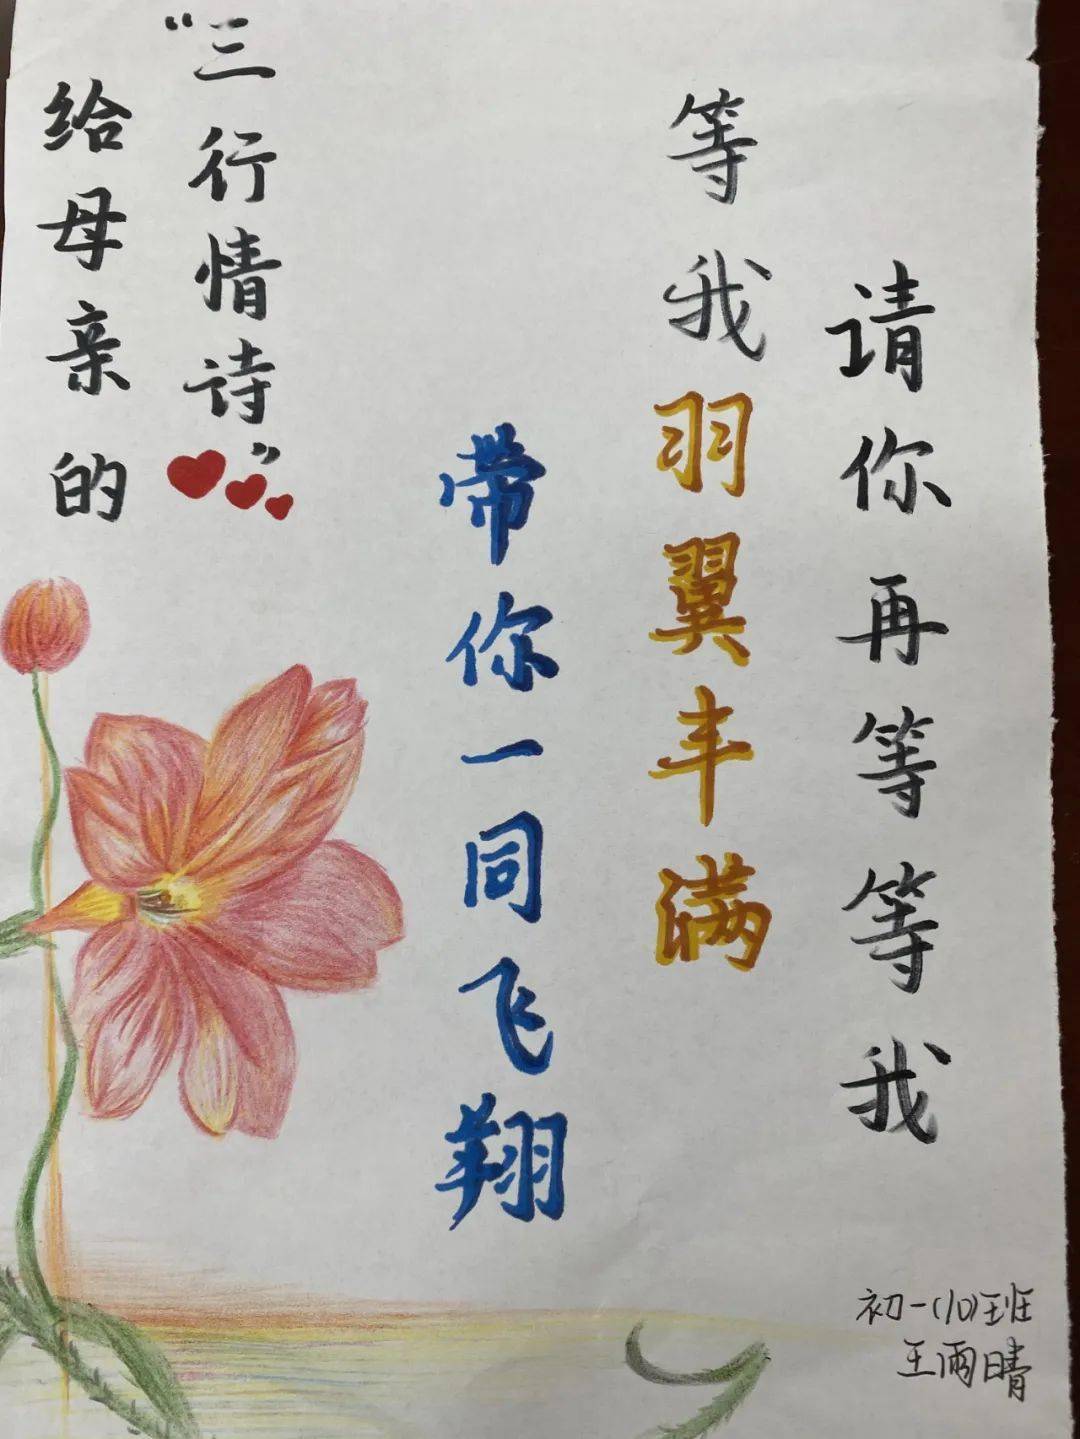 给母亲的
“三行情诗”
请你再等等我
等我羽翼丰满
带你一同飞翔
初一(10)班
王雨晴